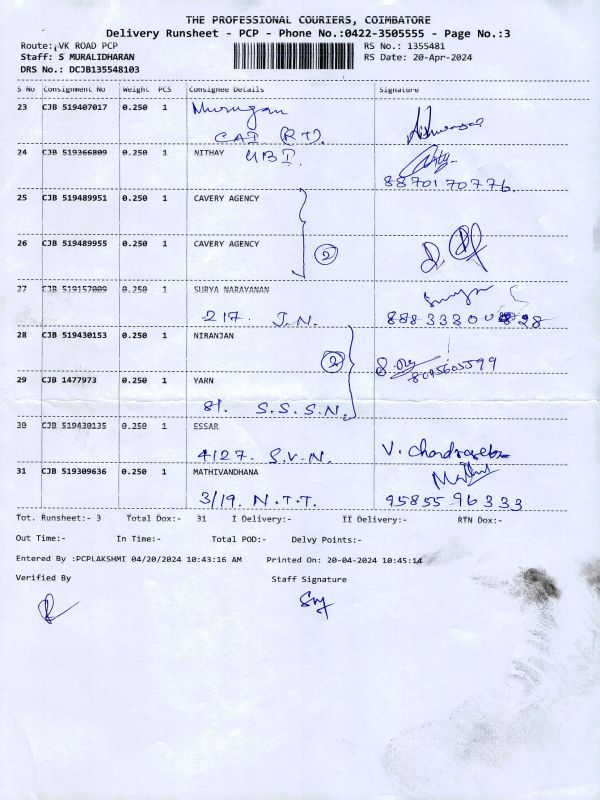 THE PROFESSIONAL COURIERS, COIMBATORE
Delivery Runsheet - PCP - Phone No.:0422-3505555 - Page No.:3
Route: VK ROAD PCP RS No.: 1355481
Staff: S MURALIDHARAN RS Date: 20-Apr-2024
DRS No.: DCJB135548103
S No Consignment No Weight PCS Consignee Details Signature
23 CJB 519407017 0.250 1 Murugan
CAI (RT).
24 CJB 519366809 0.250 1 NITHAY UBI.
8870170776.
25 CJB 519489951 0.250 1 CAVERY AGENCY
26 CJB 519489955 0.250 1 CAVERY AGENCY 2
27 CJB 519157009 0.250 1 SURYA NARAYANAN
217. J.N.
28 CJB 519430153 0.250 1 NIRANJAN 2
8095605599
29 CJB 1477973 0.250 1 YARN
81. S.S.S.N.
30 CJB 519430135 0.250 1 ESSAR
4127. S.V.N. V. Chandrasek
31 CJB 519309636 0.250 1 MATHIVANDHANA
3/19. N.T.T. 95855 96333
Tot. Runsheet:- 3 Total Dox:- 31 I Delivery:- II Delivery:- RTN Dox:-
Out Time:- In Time:- Total POD:- Delvy Points:-
Entered By :PCPLAKSHMI 04/20/2024 10:43:16 AM Printed On: 20-04-2024 10:45:14
Verified By Staff Signature